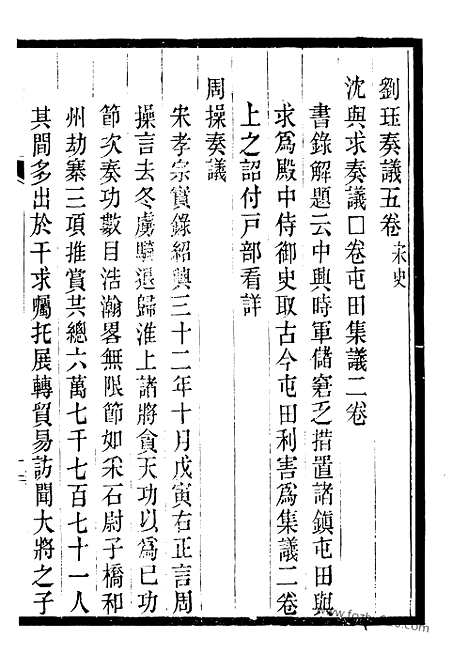 劉珏奏議五卷宋史
沈與求奏議囗卷屯田集議二卷
書錄解題云中興時軍儲窘乏措置諸鎮屯田與
求爲殿中侍御史取古今屯田利害爲集議二卷
上之詔付戸部看詳
周操奏議
宋孝宗實錄紹興三十二年十月戊寅右正言周
操言去冬虜騎退歸淮上諸將貪天功以爲已功
節次奏功數目浩瀚畧無限節如采石尉子橋和
州劫寨三項推賞共總六萬七千七百七十一人
其間多出於干求囑托展轉貿易訪聞大將之子